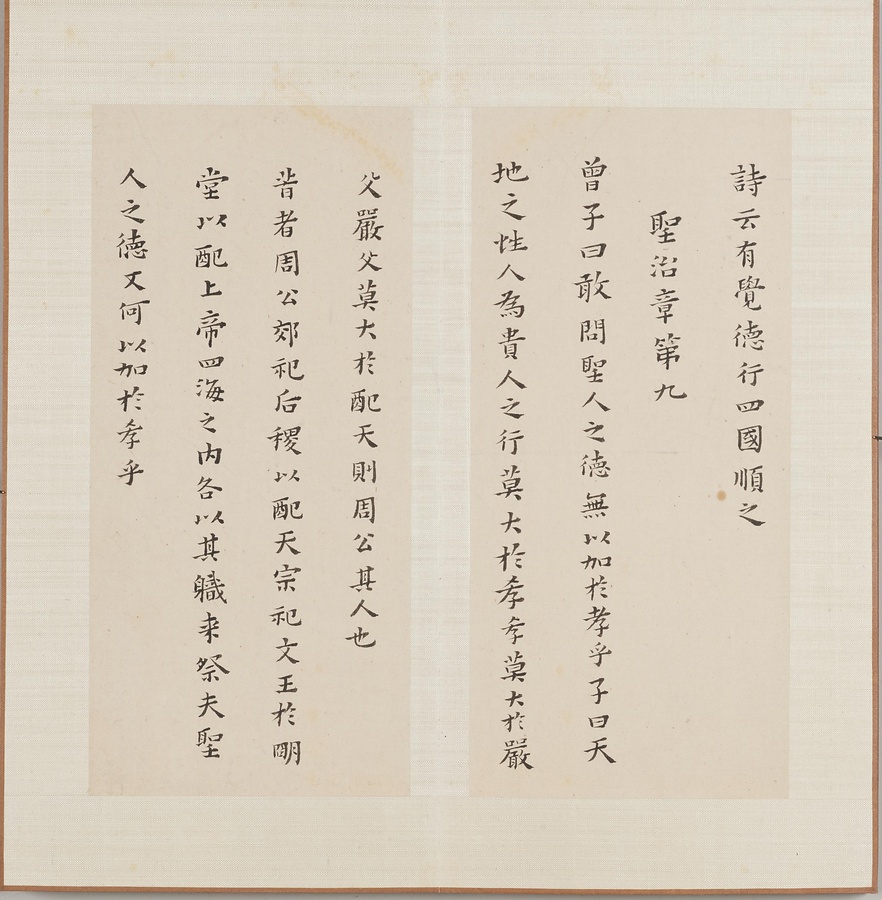 詩云有覺德行四國順之
聖治章第九
曾子曰敢問聖人之德無以加於孝乎子曰天
地之性人為貴人之行莫大於孝孝莫大於嚴
父嚴父莫大於配天則周公其人也
昔者周公郊祀后稷以配天宗祀文王於明
堂以配上帝四海之内各以其職来祭夫聖
人之德又何以加於孝乎